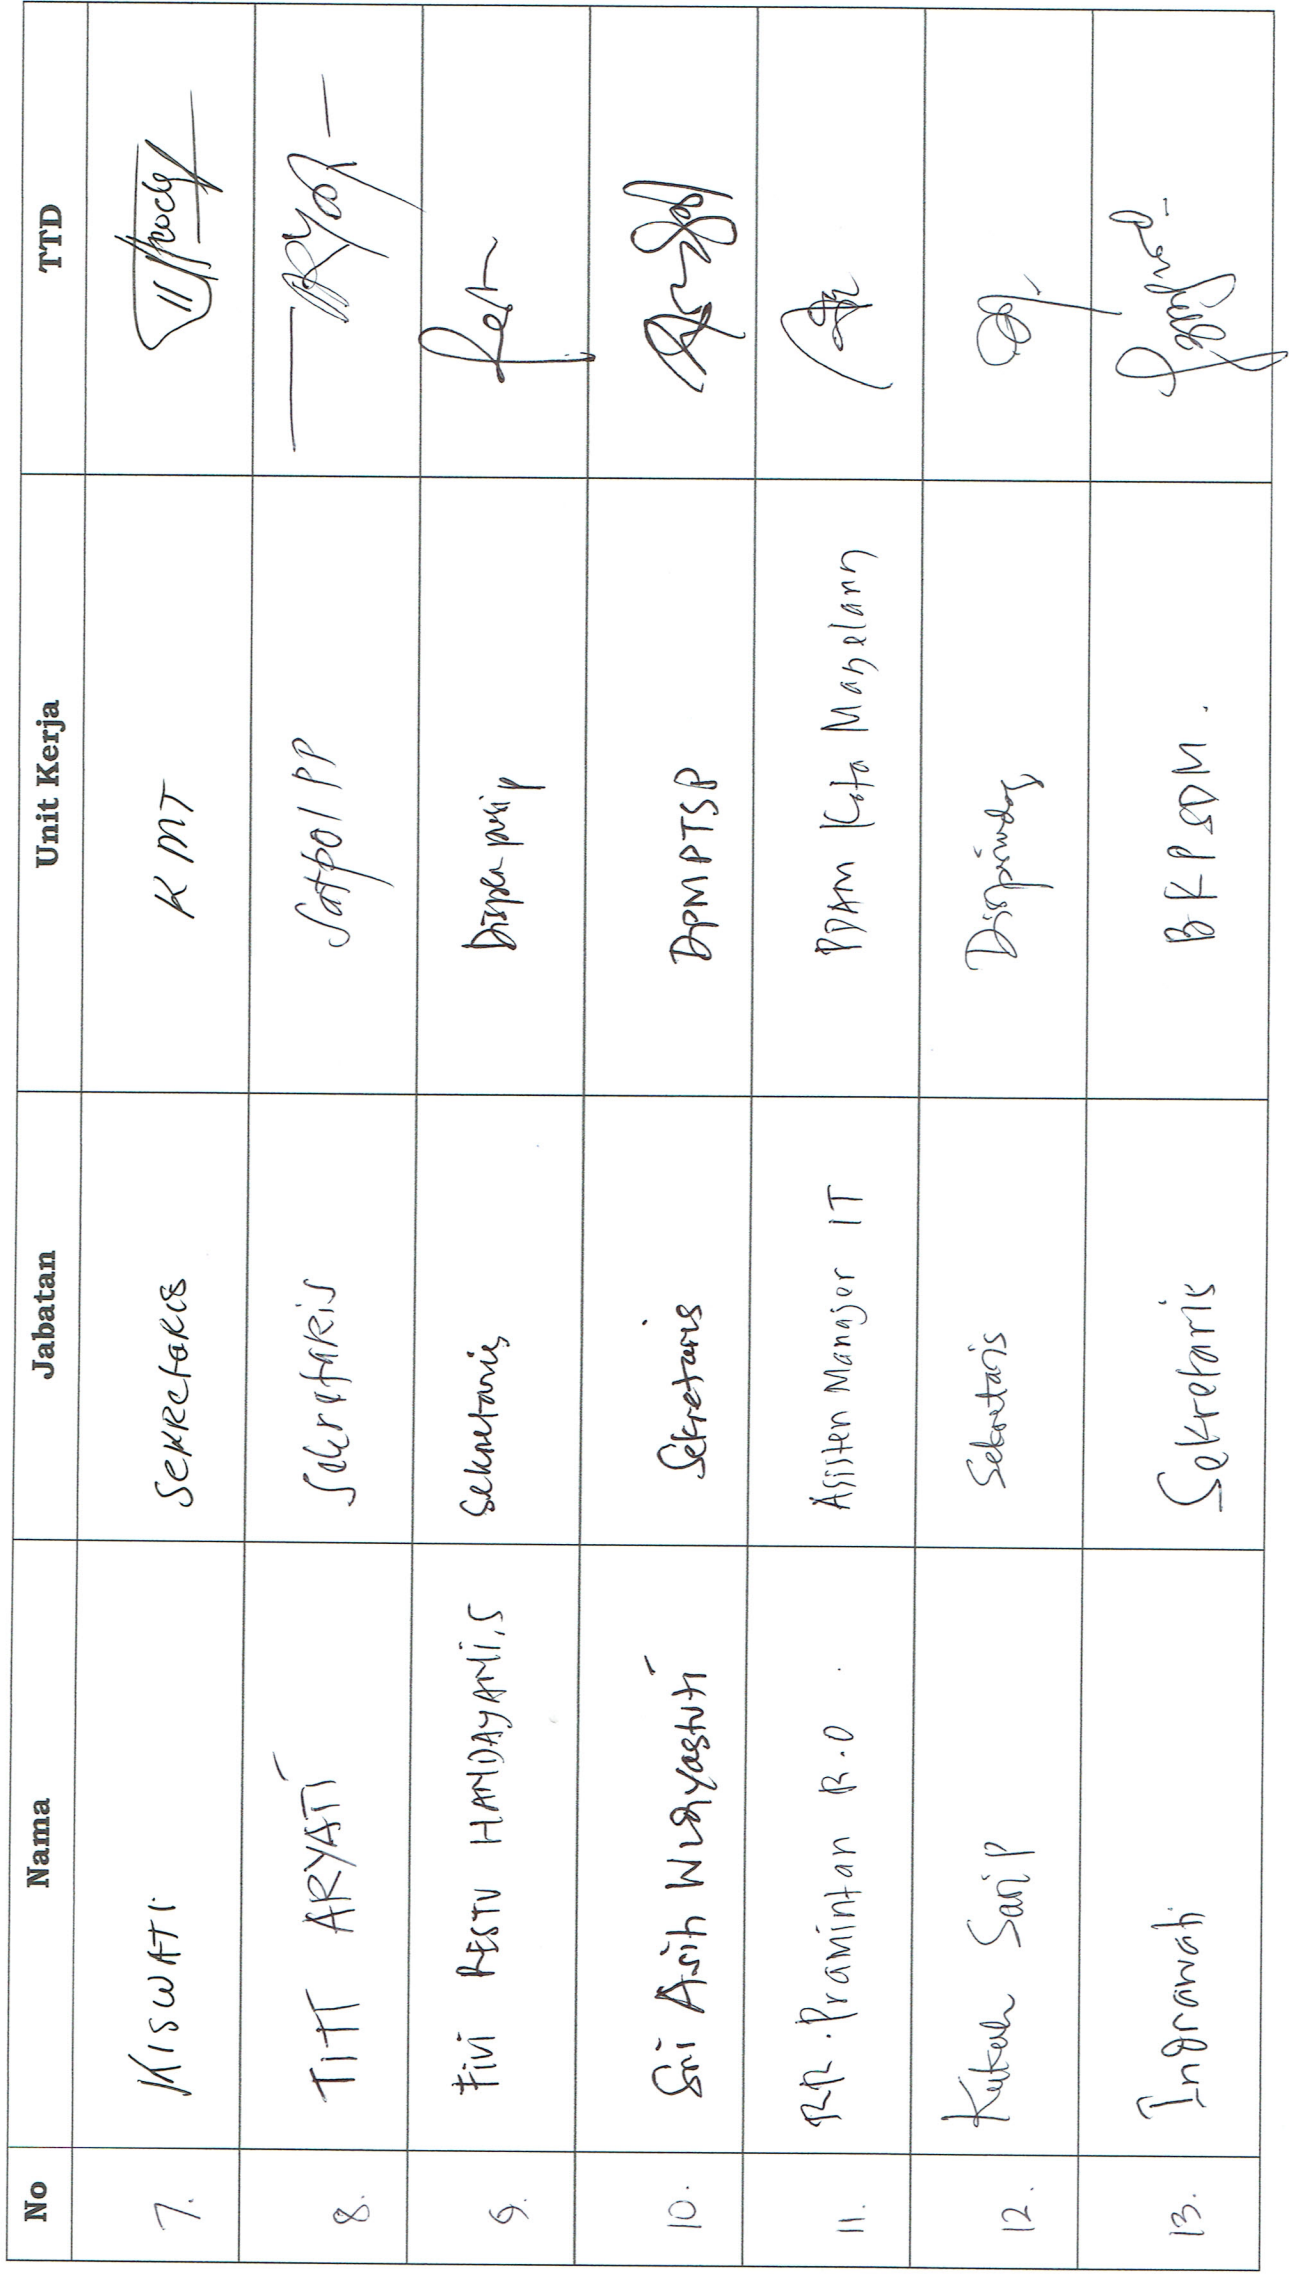 No Nama Jabatan Unit Kerja TTD
7. KISWATI Sekretaris KMT
8. TITI ARYATI Sekretaris Satpol PP
9. Fivi RESTU HANDAYANI, S Sekretaris Disperpusip
10. Sri Asih Widyastuti Sekretaris DPMPTSP
11. RR. Pramintan R.O Asisten Manajer IT PDAM Kota Magelang
12. Kukuh Sekretaris Disperindag
13. Indrawati Sekretaris BKPSDM.